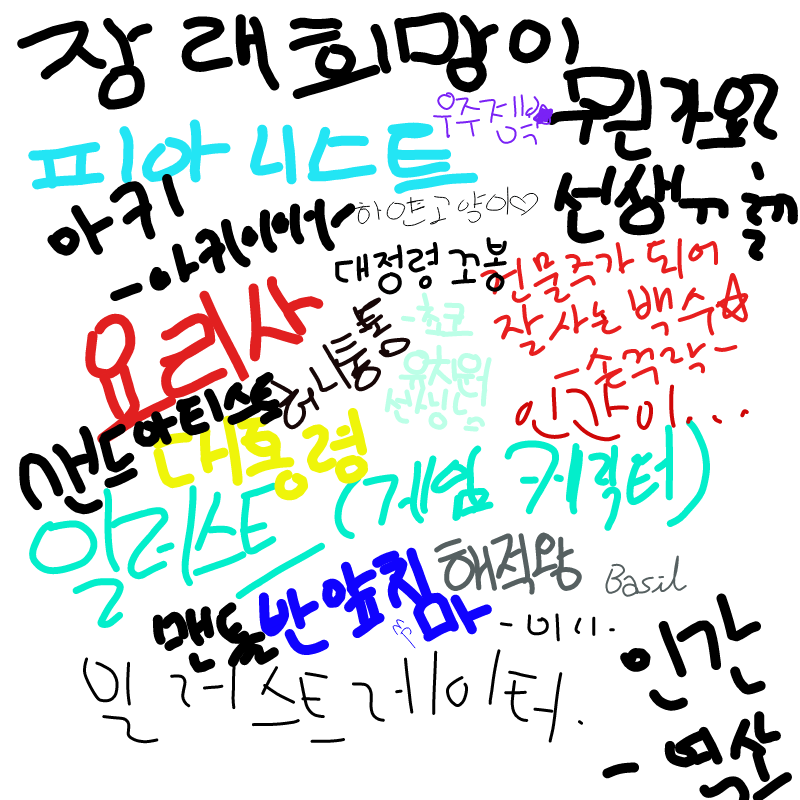 장래희망이
뭔가요?
우주정복
피아니스트
선생
아키
-아키이이어-
하얀고양이♡
대정령 꼬봉
건물주가 되어
잘 사는 백수☆
-손꾸락-
요리사
허니통통
-쵸코
유치원
선생님
인간이...
샌드아티스트
대통령
일러스트 (게임 캐릭터)
해적왕
Basil
맨돌
반앞침마
-미니.
일러스트레이터.
인간
- 역삼